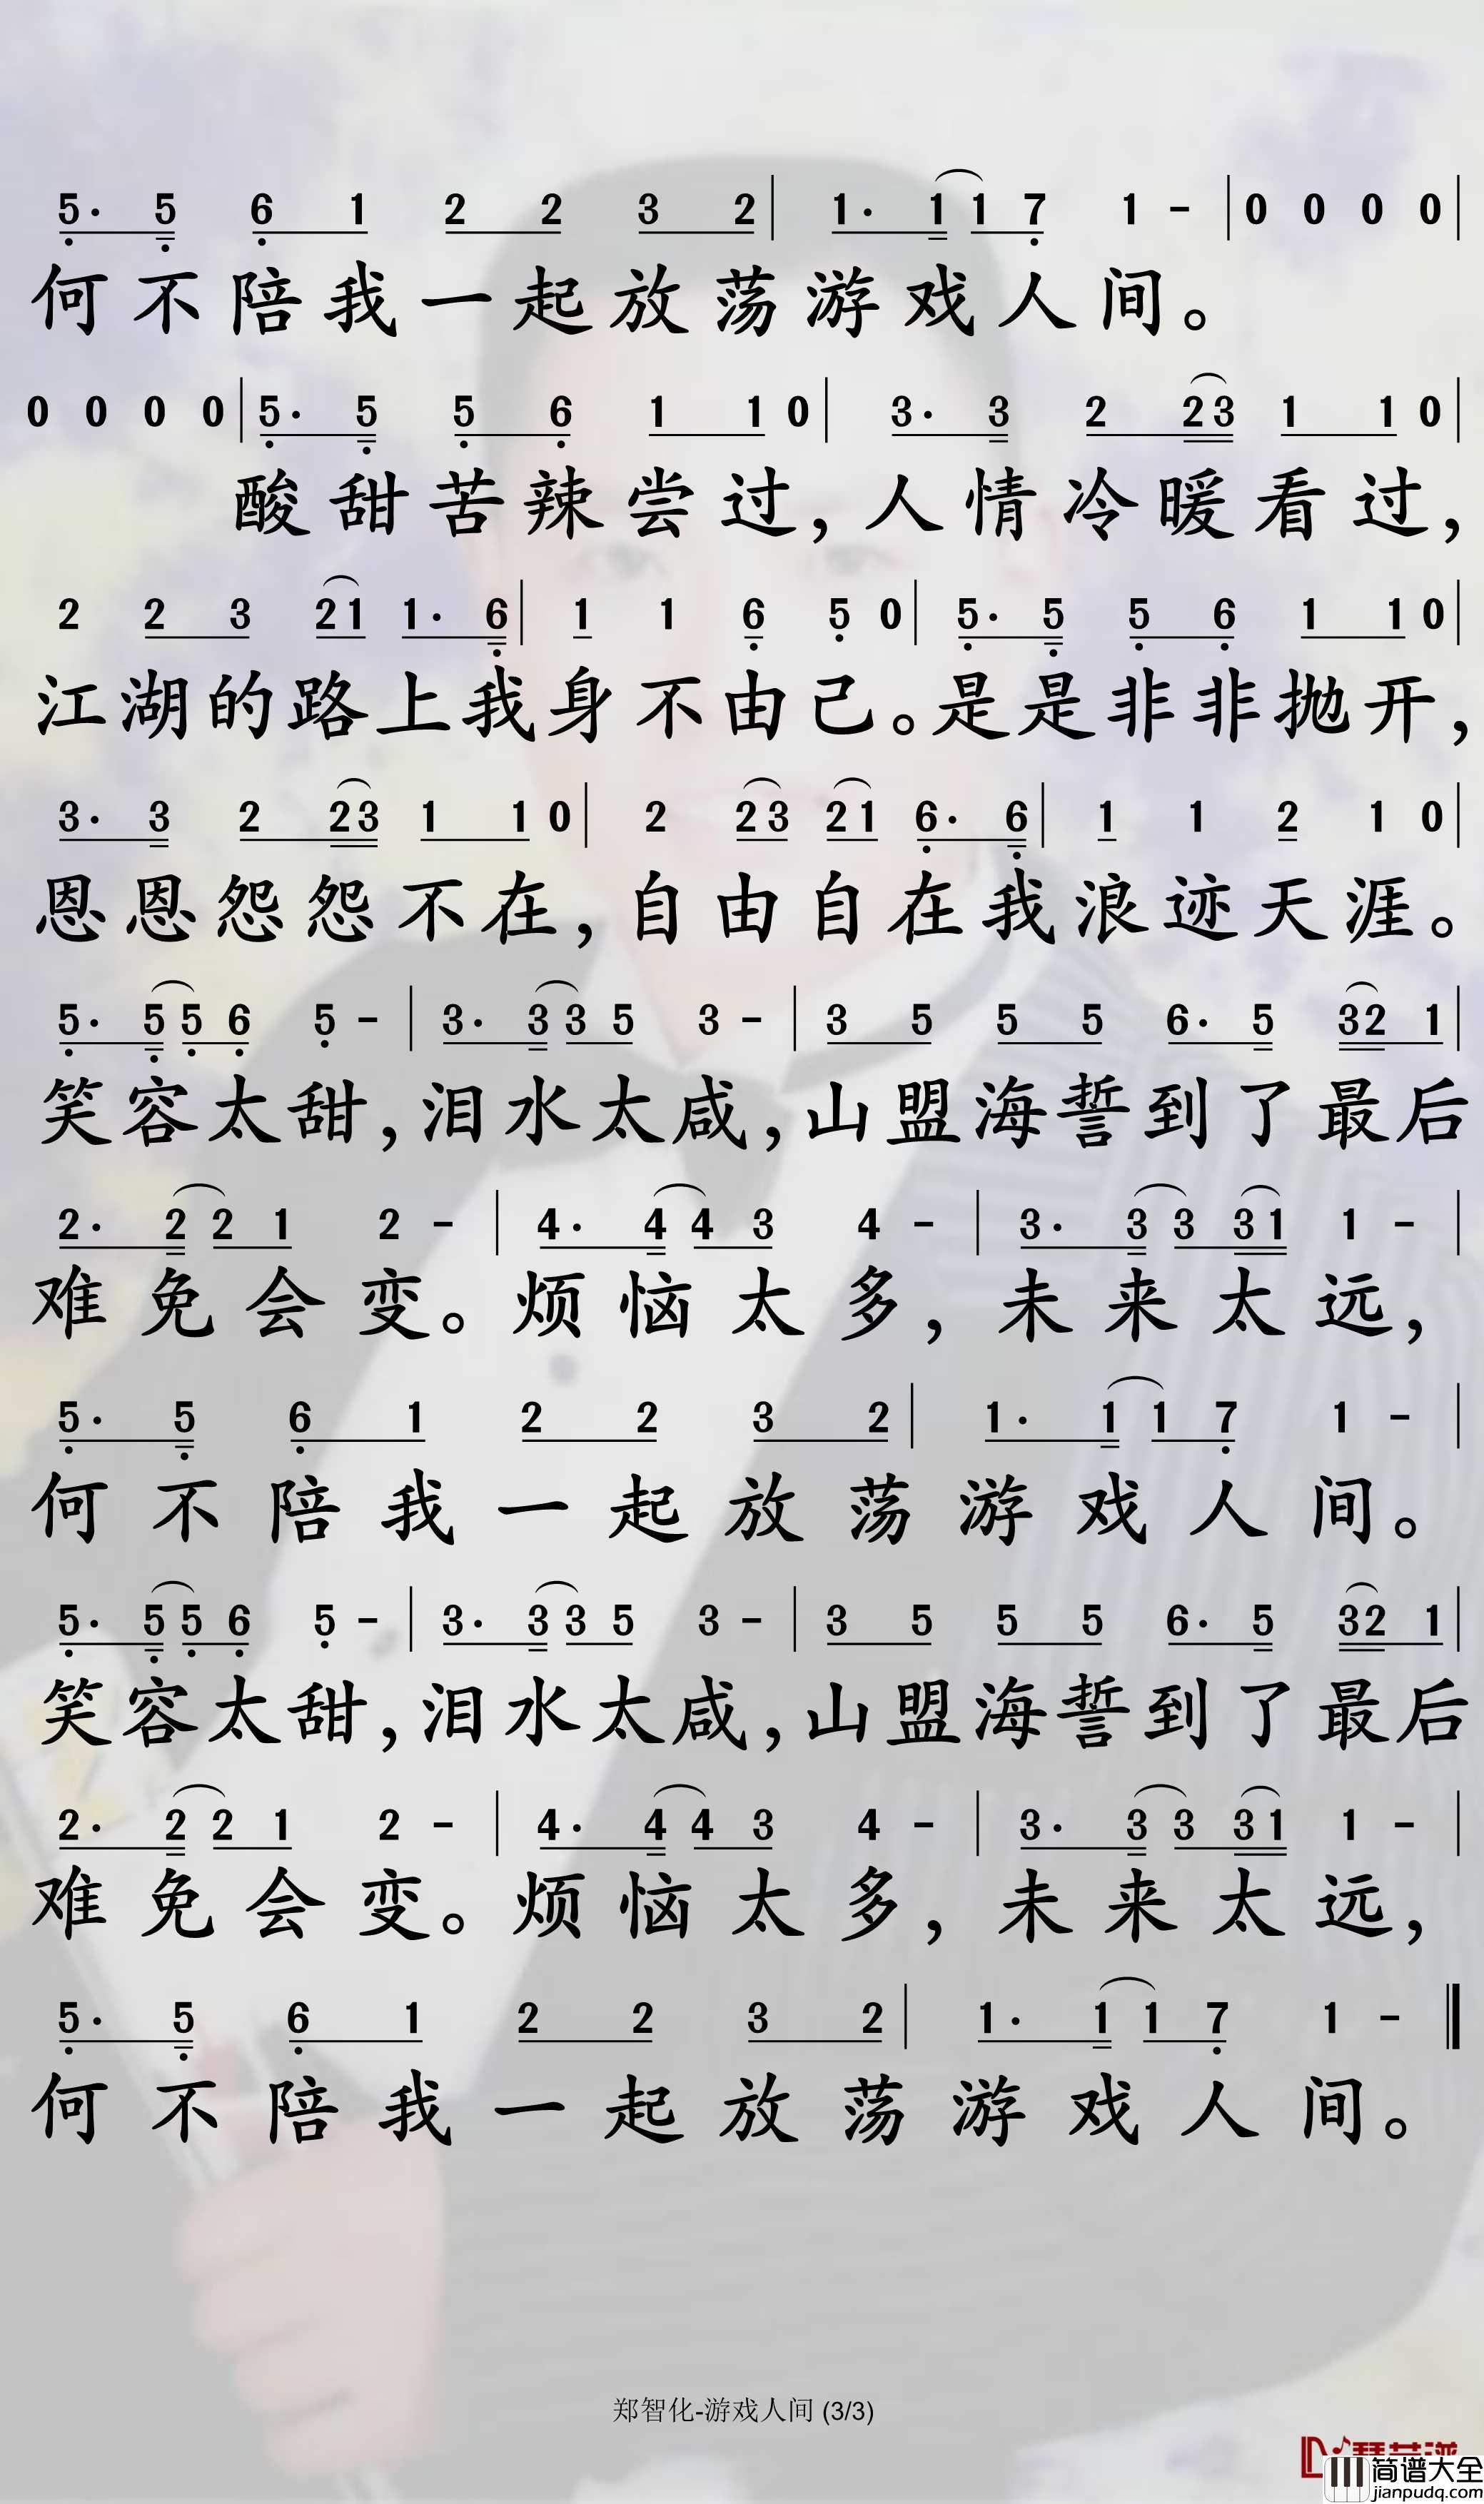 5· 5 6 1 2 2 3 2 | 1· 1 1 7 1 - | 0 0 0 0 |
何不陪我一起放荡游戏人间。
0 0 0 0 | 5· 5 5 6 1 1 0 | 3· 3 2 2 3 1 1 0 |
酸甜苦辣尝过,人情冷暖看过,
2 2 3 2 1 1· 6 | 1 1 6 5 0 | 5· 5 5 6 1 1 0 |
江湖的路上我身不由己。是是非非抛开,
3· 3 2 2 3 1 1 0 | 2 2 3 2 1 6· 6 | 1 1 2 1 0 |
恩恩怨怨不在,自由自在我浪迹天涯。
5· 5 5 6 5 - | 3· 3 3 5 3 - | 3 5 5 5 6· 5 3 2 1 |
笑容太甜,泪水太咸,山盟海誓到了最后
2· 2 2 1 2 - | 4· 4 4 3 4 - | 3· 3 3 3 1 1 - |
难免会变。烦恼太多,未来太远,
5· 5 6 1 2 2 3 2 | 1· 1 1 7 1 - |
何不陪我一起放荡游戏人间。
5· 5 5 6 5 - | 3· 3 3 5 3 - | 3 5 5 5 6· 5 3 2 1 |
笑容太甜,泪水太咸,山盟海誓到了最后
2· 2 2 1 2 - | 4· 4 4 3 4 - | 3· 3 3 3 1 1 - |
难免会变。烦恼太多,未来太远,
5· 5 6 1 2 2 3 2 | 1· 1 1 7 1 - ‖
何不陪我一起放荡游戏人间。
郑智化-游戏人间 (3/3)
简谱大全
jianpudq.com